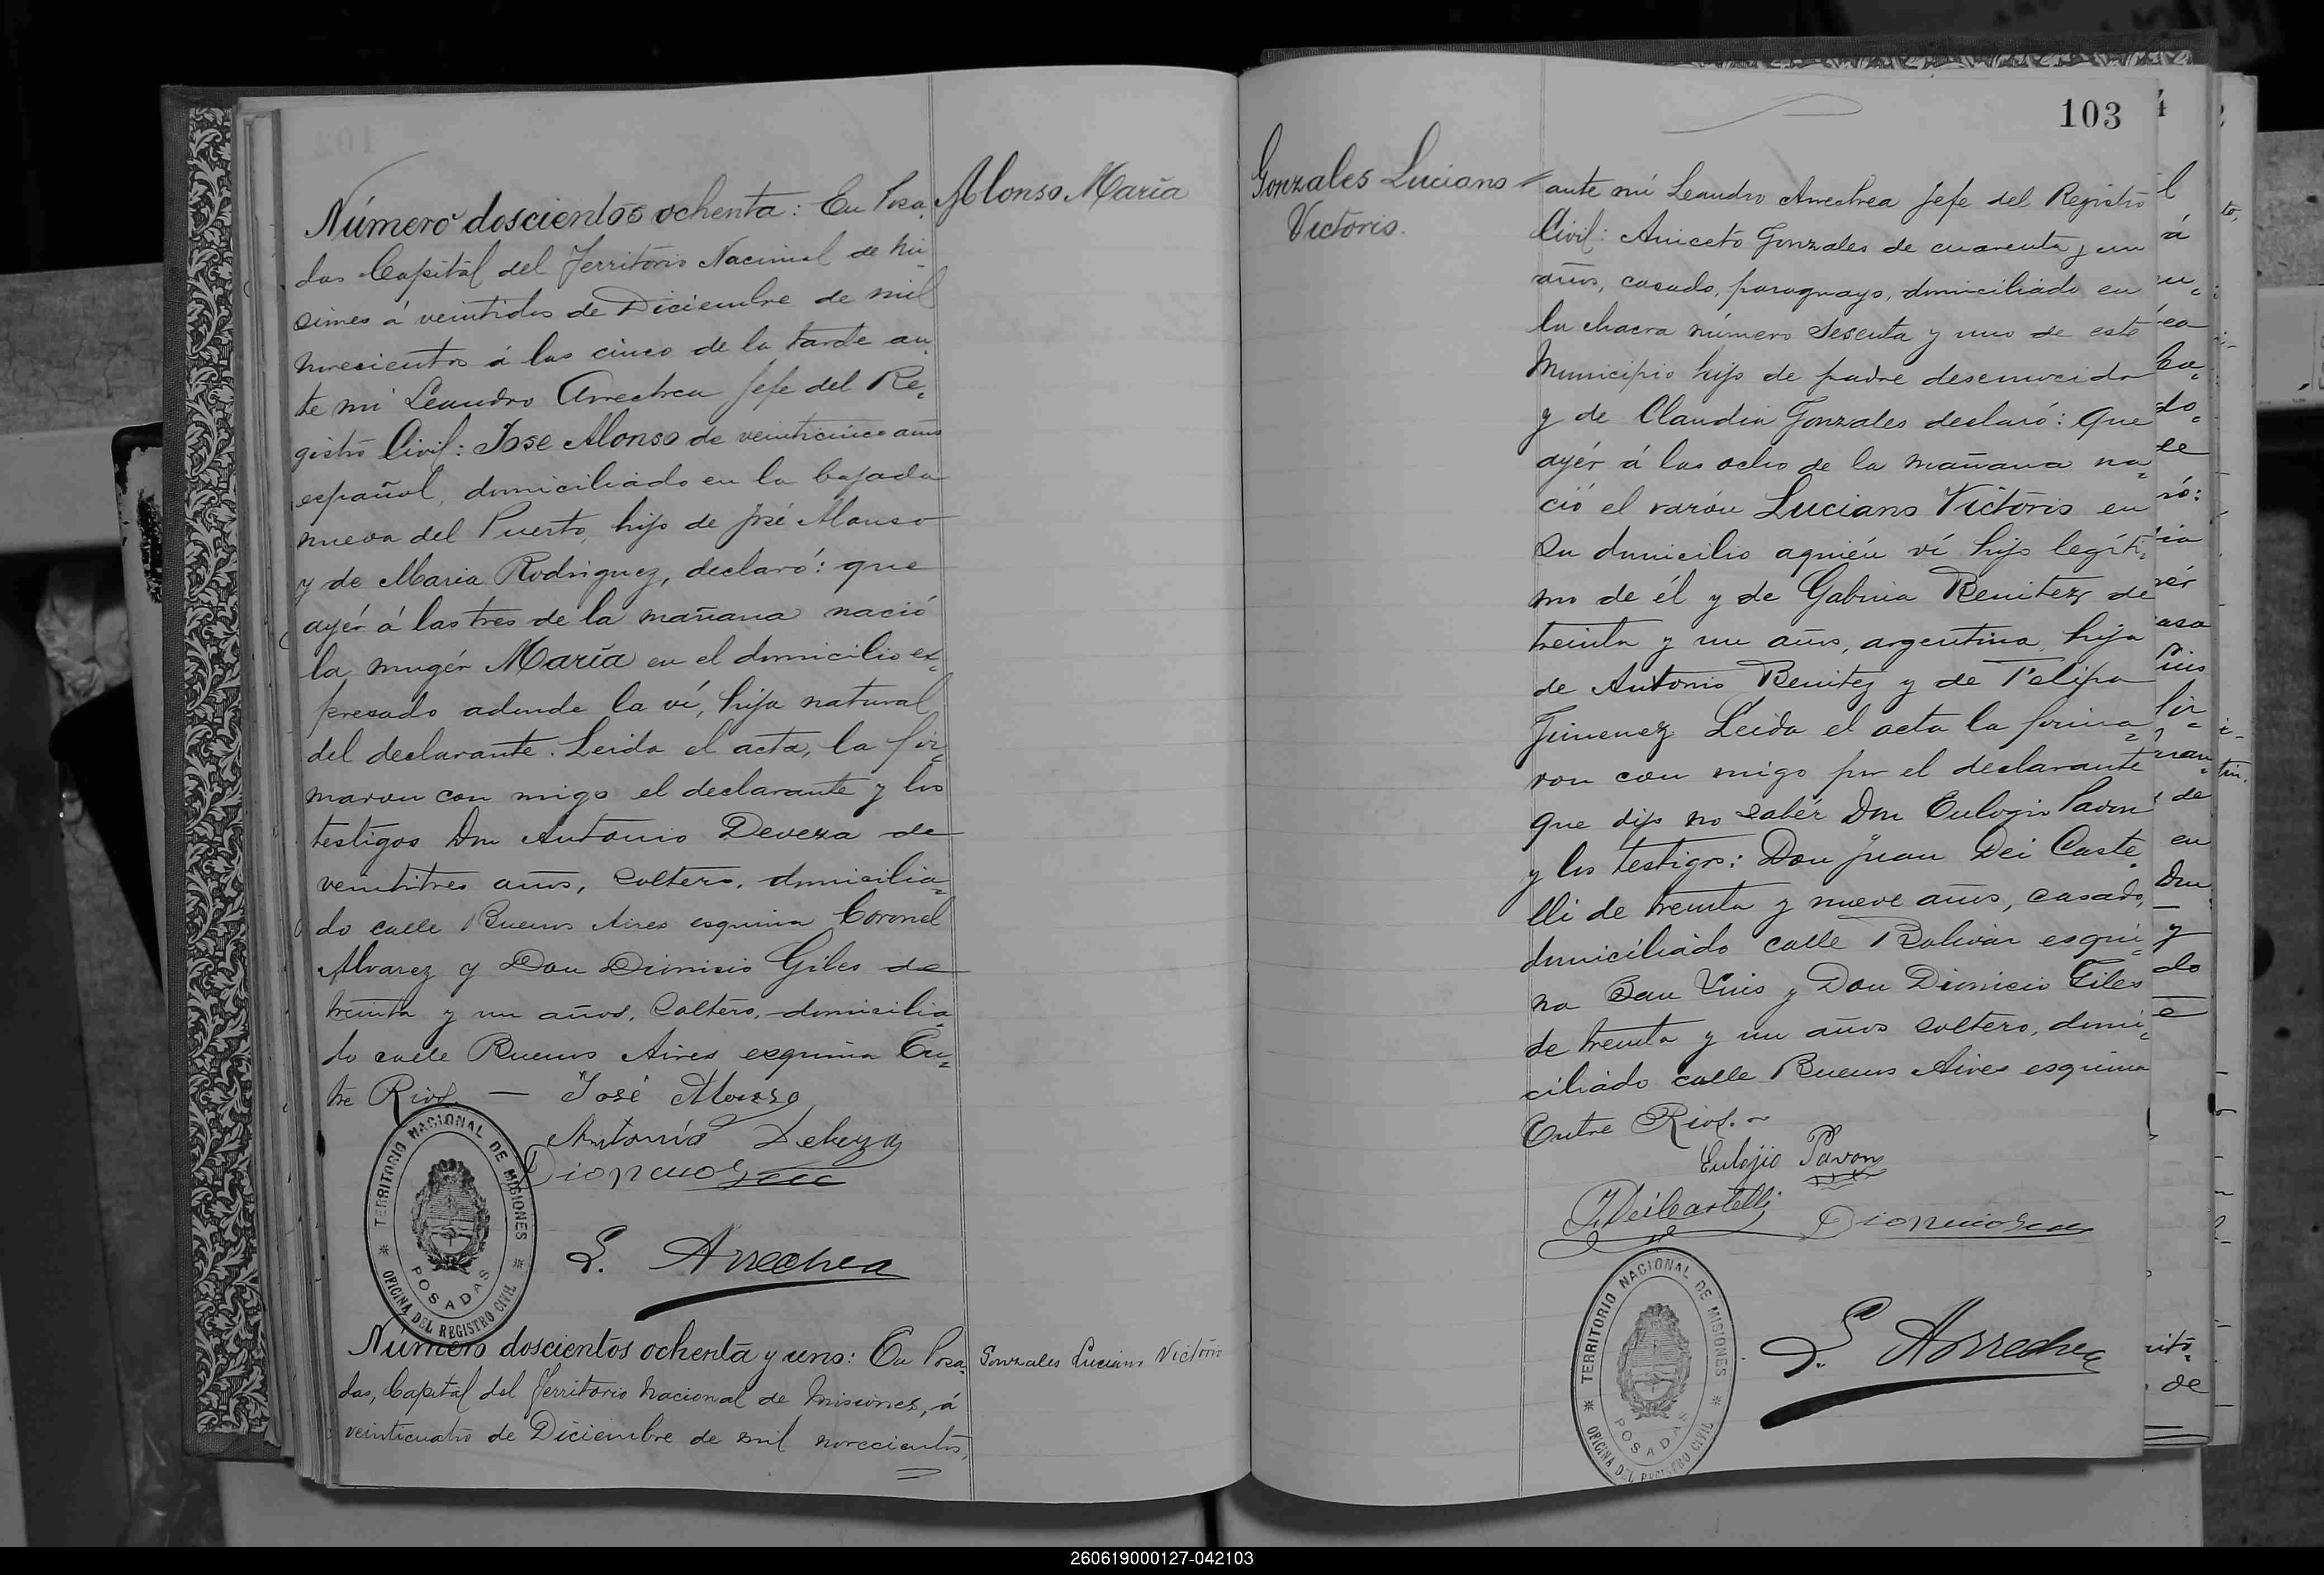 Alonso María
Número doscientos ochenta: En Posa-
das Capital del Territorio Nacional de Mi-
siones á veintidos de Diciembre de mil
novecientos á las cinco de la tarde an-
te mi Leandro Arrechea Jefe del Re-
gistro Civil: Jose Alonso de veinticinco años
español, domiciliado en la bajada
nueva del Puerto, hijo de José Alonso
y de Maria Rodriguez, declaró: que
ayér á las tres de la mañana nació
la mugér María en el domicilio ex-
presado adonde la ví, hija natural
del declarante. Leida el acta, la fir-
maron con migo el declarante y los
testigos Don Antonio Deveza de
veintitres años, soltero, domicilia-
do calle Buenos Aires esquina Coronel
Alvarez y Don Dionisio Giles de
treinta y un años, soltero, domicilia-
do calle Buenos Aires esquina En-
tre Rios. — José Alonso
Antonio Debeza
L. Arrechea
TERRITORIO NACIONAL DE MISIONES
POSADAS
OFICINA DEL REGISTRO CIVIL
Número doscientos ochenta y uno: En Posa-
Gonzales Luciano Victorio
das, Capital del Territorio Nacional de Misiones, á
veinticuatro de Diciembre de mil novecientos,
103
Gonzales Luciano
Victorio.
ante mi Leandro Arrechea Jefe del Registro
Civil: Aniceto Gonzales de cuarenta y un
años, casado, paraguayo, domiciliado en
la chacra número sesenta y uno de este
Municipio hijo de padre desconocido
y de Claudia Gonzales declaró: Que
ayér á las ocho de la mañana na-
ció el varón Luciano Victorio en
su domicilio aquién ví hijo legíti-
mo de él y de Gabina Benitez de
treinta y un años, argentina, hija
de Antonio Benitez y de Felipa
Jimenez Leida el acta la firma-
ron con migo por el declarante
que dijo no sabér Don Eulogio Pavon
y los testigos: Don Juan Dei Caste-
lli de treinta y nueve años, casado,
domiciliado calle Bolivar esqui-
na San Luis y Don Dionicio Giles
de treinta y un años soltero, domi-
ciliado calle Buenos Aires esquina
Entre Rios.
Eulojio Pavon
J. Dei Castelli
L. Arrechea
TERRITORIO NACIONAL DE MISIONES
POSADAS
OFICINA DEL REGISTRO CIVIL
260619000127-042103